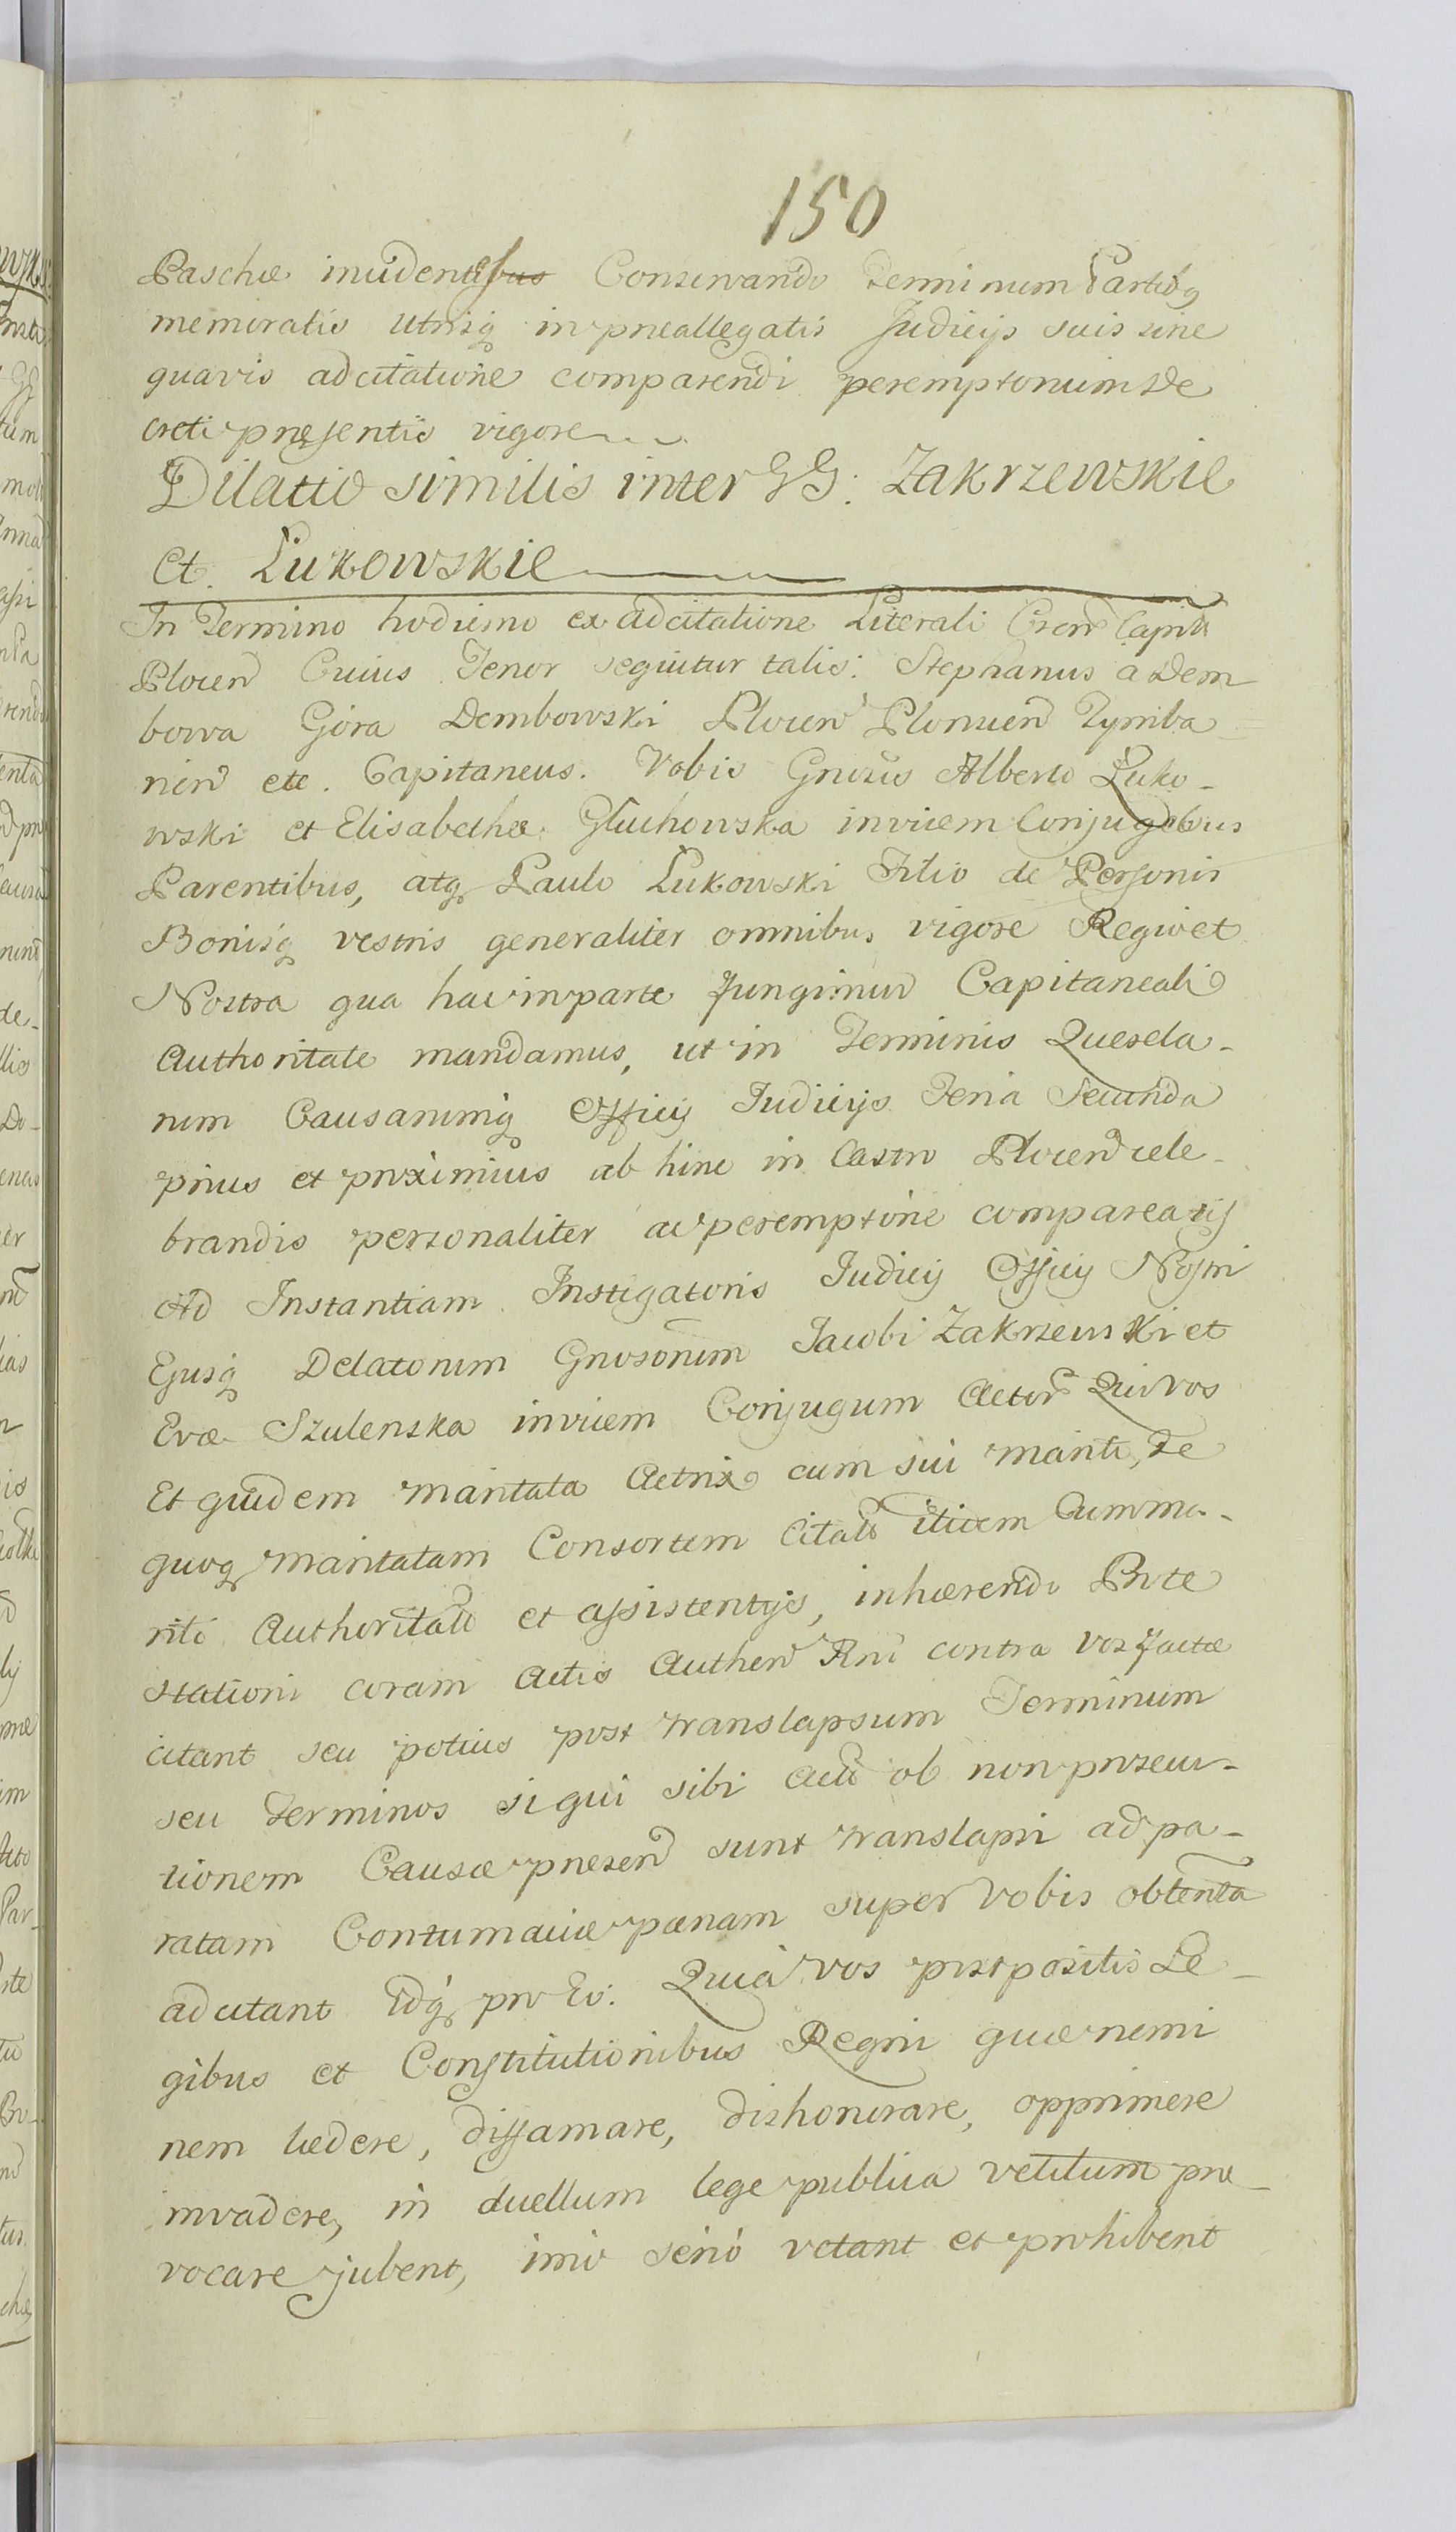 150
Paschæ incidentibus Conservando Terminum Partibq
memoratis utrisq in præallegatis Judicijs suis sine
quavis adcitatione comparendi peremptorium De
creti præsentis vigore
Dilatio similis inter GG: Zakrzewskie
Et Łukowskie
In Termino hodierno ex adcitatione Literali Cren Capitli
Plocen Cuius Tenor seqvitur talis: Stephanus a Dem
bowa Góra Dembowski Plocen Plonnen Tymba
rien etc. Capitaneus. Vobis Gnrosis Alberto Łuko-
wski et Elisabethæ Głuchowska invicem Conjugebus
Parentibus, atq Paulo Łukowski Filio de Personis
Bonisq vestris generaliter omnibus vigore Regio et
Nostra qua hac in parte fungimur Capitaneali
Authoritate mandamus, ut in Terminis Querela-
rum Causarumq Officij Judicijs Feria Secunda
prius et proximius ab hinc in Castro Plocen cele-
brandis personaliter ac peremptorie compareatis
Ad Instantiam Instigatoris Judicij Officij Nostri
Ejusq Delatorum Gnrosorum Jacobi Zakrzewski et
Evæ Szulenska invicem Conjugum Actor Qui vos
Et quidem maritata Actrix cum sui mariti, Te
quoq maritatam Consortem Citati itidem Cum ma-
riti Authoritate et assistentijs, inhærendo Prote
stationi coram Actis Authen Rni contra vos factæ
citant seu potius post translapsum Terminum
seu Terminos si qui sibi Acto ob non prosecu-
tionem Causæ præsen sunt translapsi ad pa-
ratam Contumaciæ pænam super Vobis obtenta
adcitant Idq pro Eo. Quia vos postpositis Le-
gibus et Constitutionibus Regni quæ nemi
nem lædere, diffamare, dishonorare, opprimere
invadere, in duellum lege publica vetitum pro-
vocare jubent, imo serió vetant et prohibent